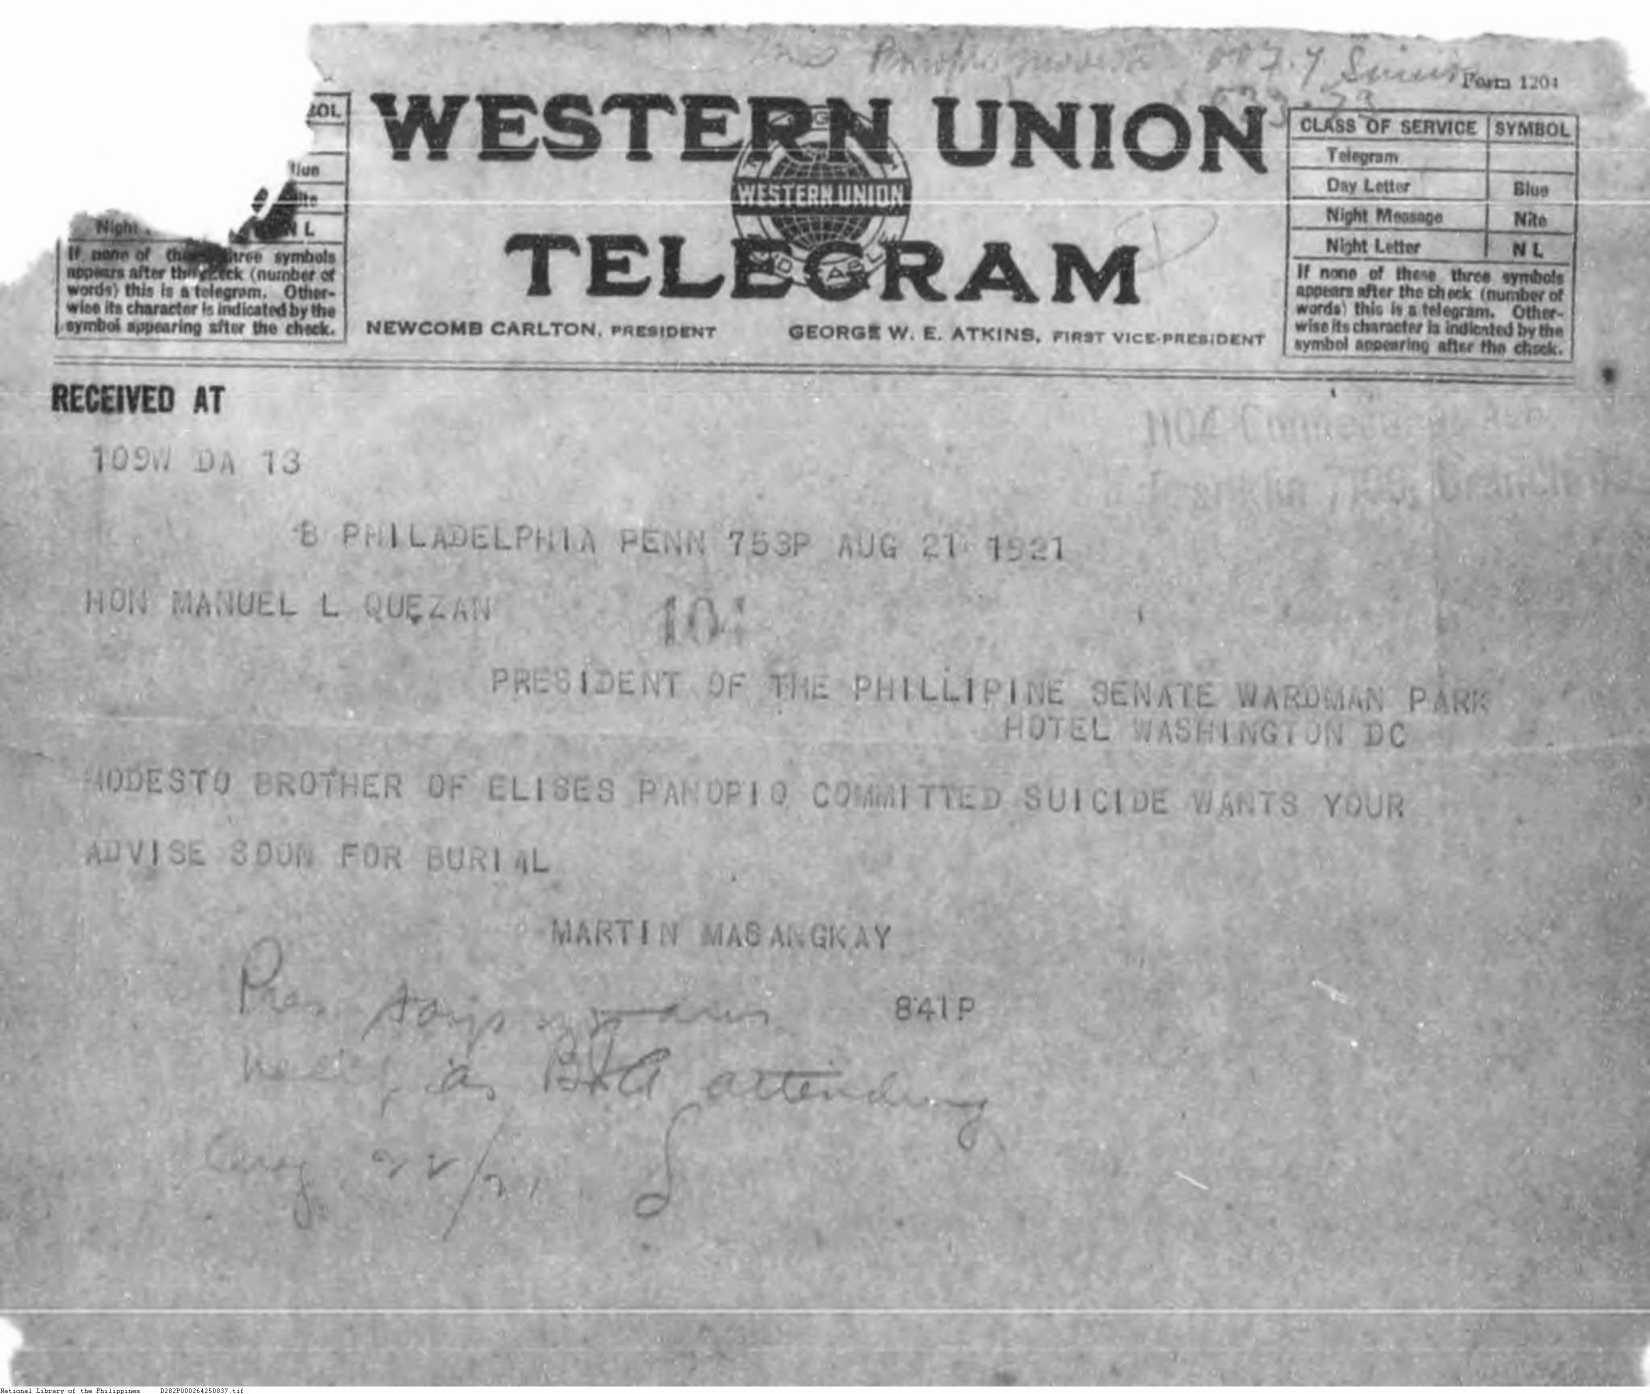 Form 1204
WESTERN UNION
WESTERN UNION
TELEGRAM
NEWCOMB CARLTON, PRESIDENT GEORGE W. E. ATKINS, FIRST VICE-PRESIDENT
OL
Blue
Nite
Night N L
If none of these three symbols
appears after the check (number of
words) this is a telegram. Other-
wise its character is indicated by the
symbol appearing after the check.
CLASS OF SERVICE SYMBOL
Telegram
Day Letter Blue
Night Message Nite
Night Letter N L
If none of these three symbols
appears after the check (number of
words) this is a telegram. Other-
wise its character is indicated by the
symbol appearing after the check.
RECEIVED AT
109W DA 13
B PHILADELPHIA PENN 753P AUG 21 1921
HON MANUEL L QUEZAN
PRESIDENT OF THE PHILLIPINE SENATE WARDMAN PARK
HOTEL WASHINGTON DC
MODESTO BROTHER OF ELISES PANOPIO COMMITTED SUICIDE WANTS YOUR
ADVISE SOON FOR BURIAL
MARTIN MASANGKAY
841P
Pres. says
as BIA attending
Aug. 22/21.
National Library of the Philippines D282P000264250037.tif